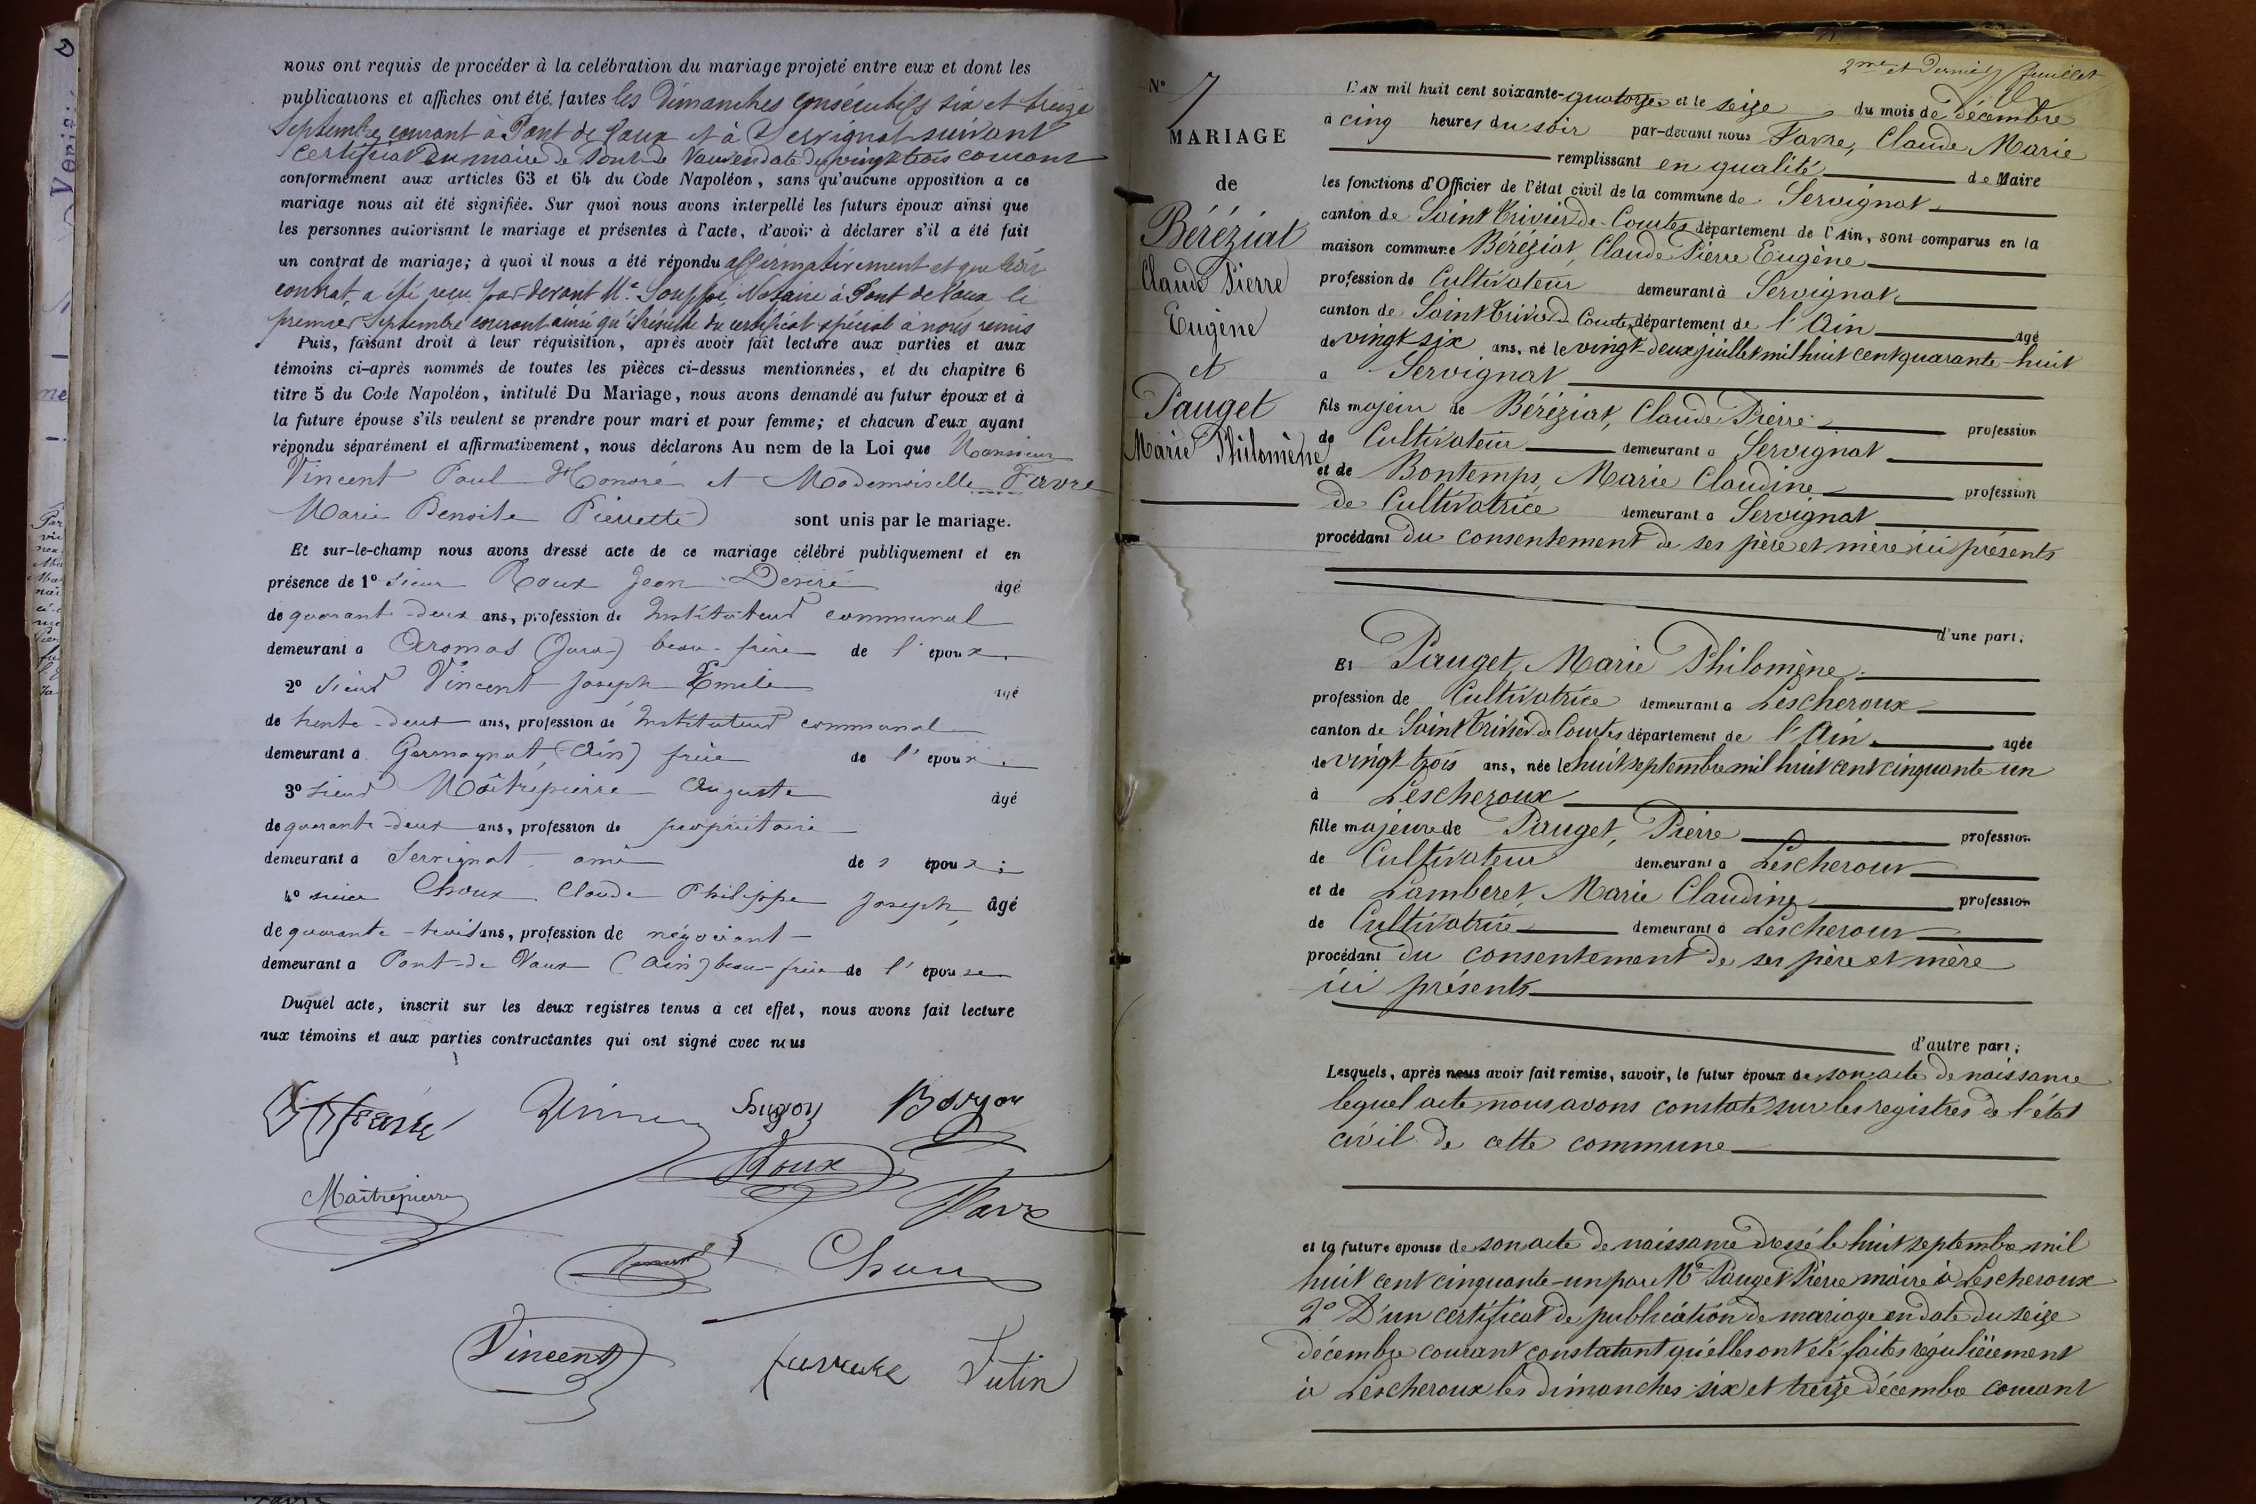 nous ont requis de procéder à la celébration du mariage projeté entre eux et dont les
publications et affiches ont été faites les Dimanches consécutifs six et treize
Septembre courant à Pont de Vaux et à Servignat suivant
certificat du maire de Pont de Vaux en date du vingt trois courant
conformément aux articles 63 et 64 du Code Napoléon, sans qu'aucune opposition a ce
mariage nous ait été signifiée. Sur quoi nous avons interpellé les futurs époux ainsi que
les personnes autorisant le mariage et présentes à l'acte, d'avoir à déclarer s'il a été fait
un contrat de mariage; à quoi il nous a été répondu affirmativement et que
contrat a été reçu par devant Me Notaire à Pont de Vaux le
premier Septembre courant ainsi qu'il résulte du certificat spécial à nous remis
Puis, faisant droit à leur réquisition, après avoir fait lecture aux parties et aux
témoins ci-après nommés de toutes les pièces ci-dessus mentionnées, et du chapitre 6
titre 5 du Code Napoléon, intitulé Du Mariage, nous avons demandé au futur époux et à
la future épouse s'ils veulent se prendre pour mari et pour femme; et chacun d'eux ayant
répondu séparément et affirmativement, nous déclarons Au nom de la Loi que Monsieur
Vincent Paul Honoré et Mademoiselle Favre
Marie Benoite Pierrette sont unis par le mariage.
Et sur-le-champ nous avons dressé acte de ce mariage célébré publiquement et en
présence de 1° Sieur Roux Jean Desiré âgé
de quarante-deux ans, profession de Instituteur communal
demeurant a Aromas (Jura) beau-frère de l'epoux
2° Sieur Vincent Joseph Emile agé
de trente-deux ans, profession de Instituteur communal
demeurant a Germagnat, (Ain) frère de l'epoux.
3° Sieur Maîtrepierre Auguste âgé
de quarante-deux ans, profession de propriétaire
demeurant a Servignat ami de l'époux.
4° sieur Choux Claude Philippe Joseph, âgé
de quarante-trois ans, profession de négociant
demeurant a Pont-de Vaux (Ain) beau-frère de l'épouse
Duquel acte, inscrit sur les deux registres tenus à cet effet, nous avons fait lecture
aux témoins et aux parties contractantes qui ont signé avec nous
Roux
Maitrepierre
Favre
Vincent
Futin
2me et Dernier feuillet
N° 7
MARIAGE
de
Béréziat
Claude Pierre
Eugène
et
Pauget
Marie Philomène
L'AN mil huit cent soixante-quatorze et le seize du mois de Décembre
à cinq heures du soir par-devant nous Favre, Claude Marie
remplissant en qualité de Maire
les fonctions d'Officier de l'état civil de la commune de Servignat
canton de Saint Trivier de Courtes département de l'Ain, sont comparus en la
maison commune Béréziat, Claude Pierre Eugène
profession de Cultivateur demeurant à Servignat
canton de Saint Trivier de Courtes département de l'Ain agé
de vingt six ans, né le vingt-deux juillet mil huit cent quarante-huit
a Servignat
fils majeur de Béréziat, Claude Pierre profession
de Cultivateur demeurant a Servignat
et de Bontemps, Marie Claudine profession
de Cultivatrice demeurant a Servignat
procédant du consentement de ses père et mère ici présents
d'une part;
Et Pauget, Marie Philomène
profession de Cultivatrice demeurant a Lescheroux
canton de Saint Trivier de Courtes département de l'Ain agée
de vingt-trois ans, née le huit septembre mil huit cent cinquante un
à Lescheroux
fille majeure de Pauget, Pierre profession
de Cultivateur demeurant a Lescheroux
et de Lamberet, Marie Claudine profession
de Cultivatrice demeurant à Lescheroux
procédant du consentement de ses père et mère
ici présents
d'autre part;
Lesquels, après nous avoir fait remise, savoir, le futur époux de son acte de naissance
lequel acte nous avons constaté sur les registres de l'état
civil de cette commune
et la future epouse de son acte de naissance dressé le huit septembre mil
huit cent cinquante-un par Mr Pauget Pierre maire à Lescheroux
2° D'un certificat de publication de mariage en date du seize
décembre courant constatant qu'elles ont été faites régulièrement
à Lescheroux les dimanches six et treize décembre courant